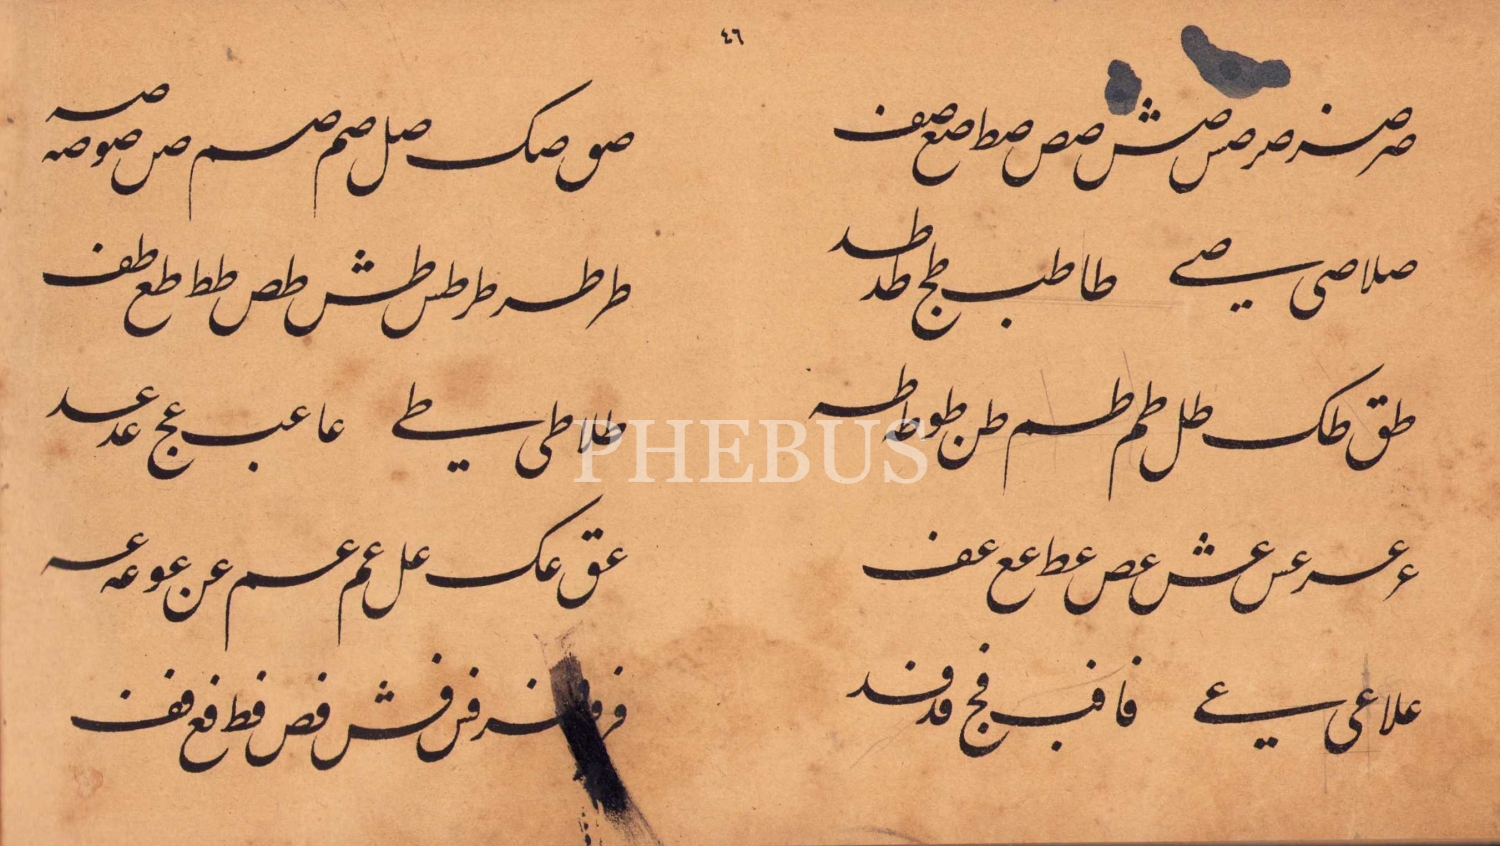 ٤٦
صر صنر صر صس صش صص صط صع صف
صق صک صل صم صم صن صو صه صه
صلا صی صے طا طب طج طد طد
طر طسر طر طس طش طص طط طع طف
طق طک طل طم طم طن طو طه طه
طلا طی طے عا عب عج عد عد
عر عسر عس عش عص عط عع عف
عق عک عل عم عم عن عو عه عه
علا عی عے فا فب فج فد فد
فر فس فش فص فط فع فف
PHEBUS